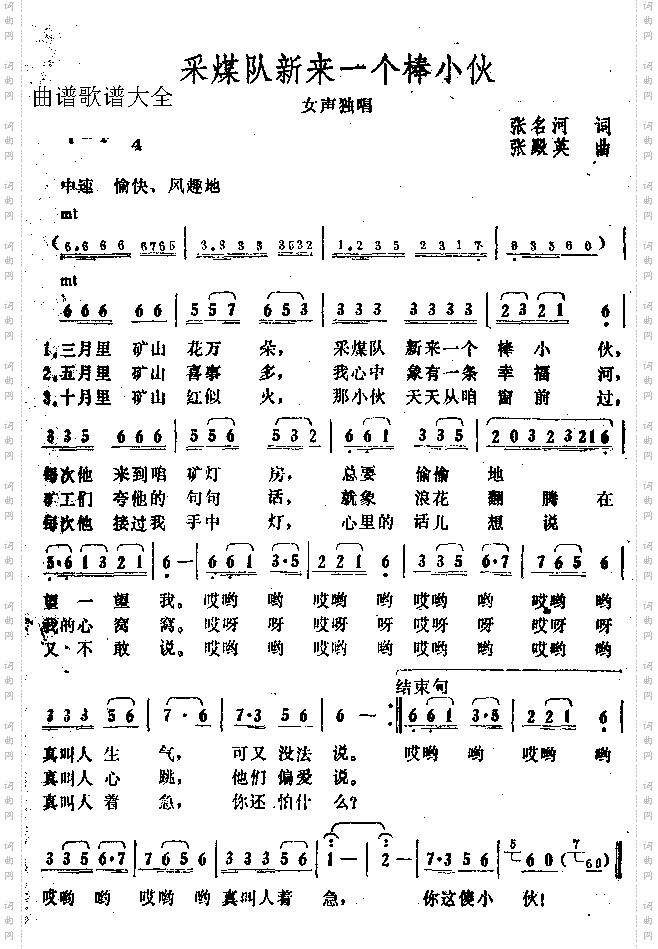 采煤队新来一个棒小伙
曲谱歌谱大全
女声独唱
张名河 词
张殿英 曲
4
中速 愉快、风趣地
mf
(6.666 6765 | 3.333 3532 | 1.235 2317 | 6333 660) |
mf
666 66 | 557 653 | 333 3333 | 2321 6 |
1.三月里 矿山 花万 朵, 采煤队 新来一个 棒 小 伙,
2.五月里 矿山 喜事 多, 我心中 象有一条 幸 福 河,
3.十月里 矿山 红似 火, 那小伙 天天从咱 窗 前 过,
335 666 | 556 532 | 661 335 | 2032 3216 |
每次他 来到咱 矿灯 房, 总要 偷偷 地
矿工们 夸他的 句句 话, 就象 浪花 翻 腾 在
每次他 接过我 手中 灯, 心里的 话儿 想 说
5·61321 | 6— | 661 3·5 | 221 6 | 661 335 | 765 6 |
望 一 望 我。 哎哟 哟 哎哟 哟 哎哟 哟 哎哟 哟
我的 心 窝 窝。 哎呀 呀 哎呀 呀 哎呀 呀 哎呀 呀
又 不 敢 说。 哎哟 哟 哎哟 哟 哎哟 哟 哎哟 哟
结束句
333 56 | 7·6 | 7·3 56 | 6— :‖ 661 3·5 | 221 6 |
真叫人 生 气, 可又 没法 说。 哎哟 哟 哎哟 哟
真叫人 心 跳, 他们 偏爱 说。
真叫人 着 急, 你还 怕什 么?
335 6·7 | 765 6 | 333 56 | 1— | 2— | 7·3 56 | 5 60 (7 60) ‖
哎哟 哟 哎哟 哟 真叫人着 急, 你这傻小 伙!
词曲网